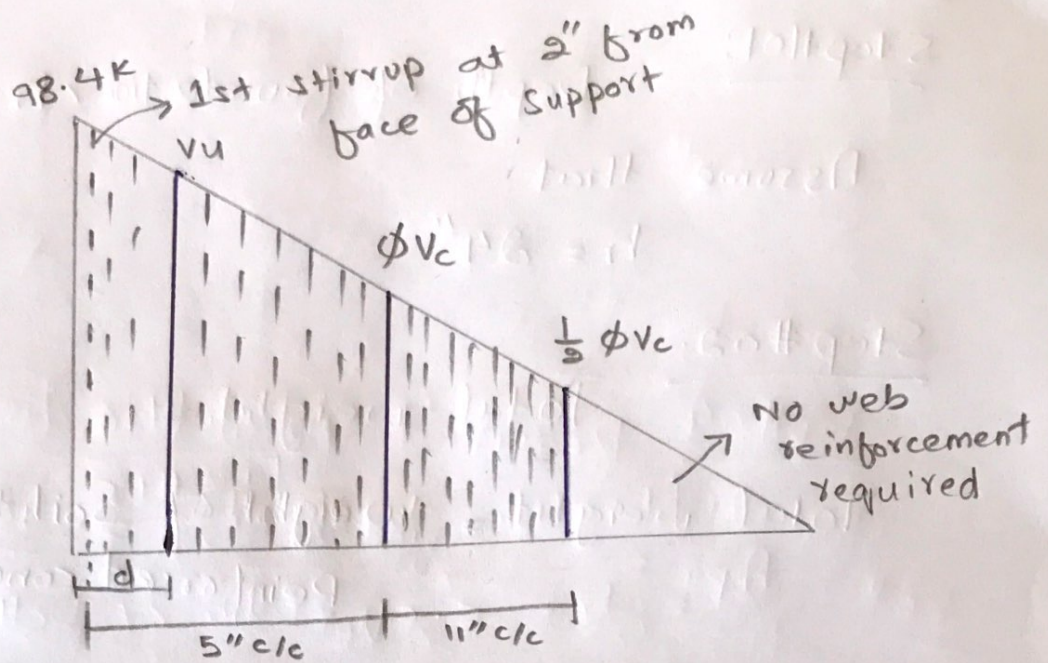 98.4K
1st stirrup at 2" from
face of support
Vu
ϕVc
1/2 ϕVc
No web
reinforcement
required
d
5" c/c
11" c/c